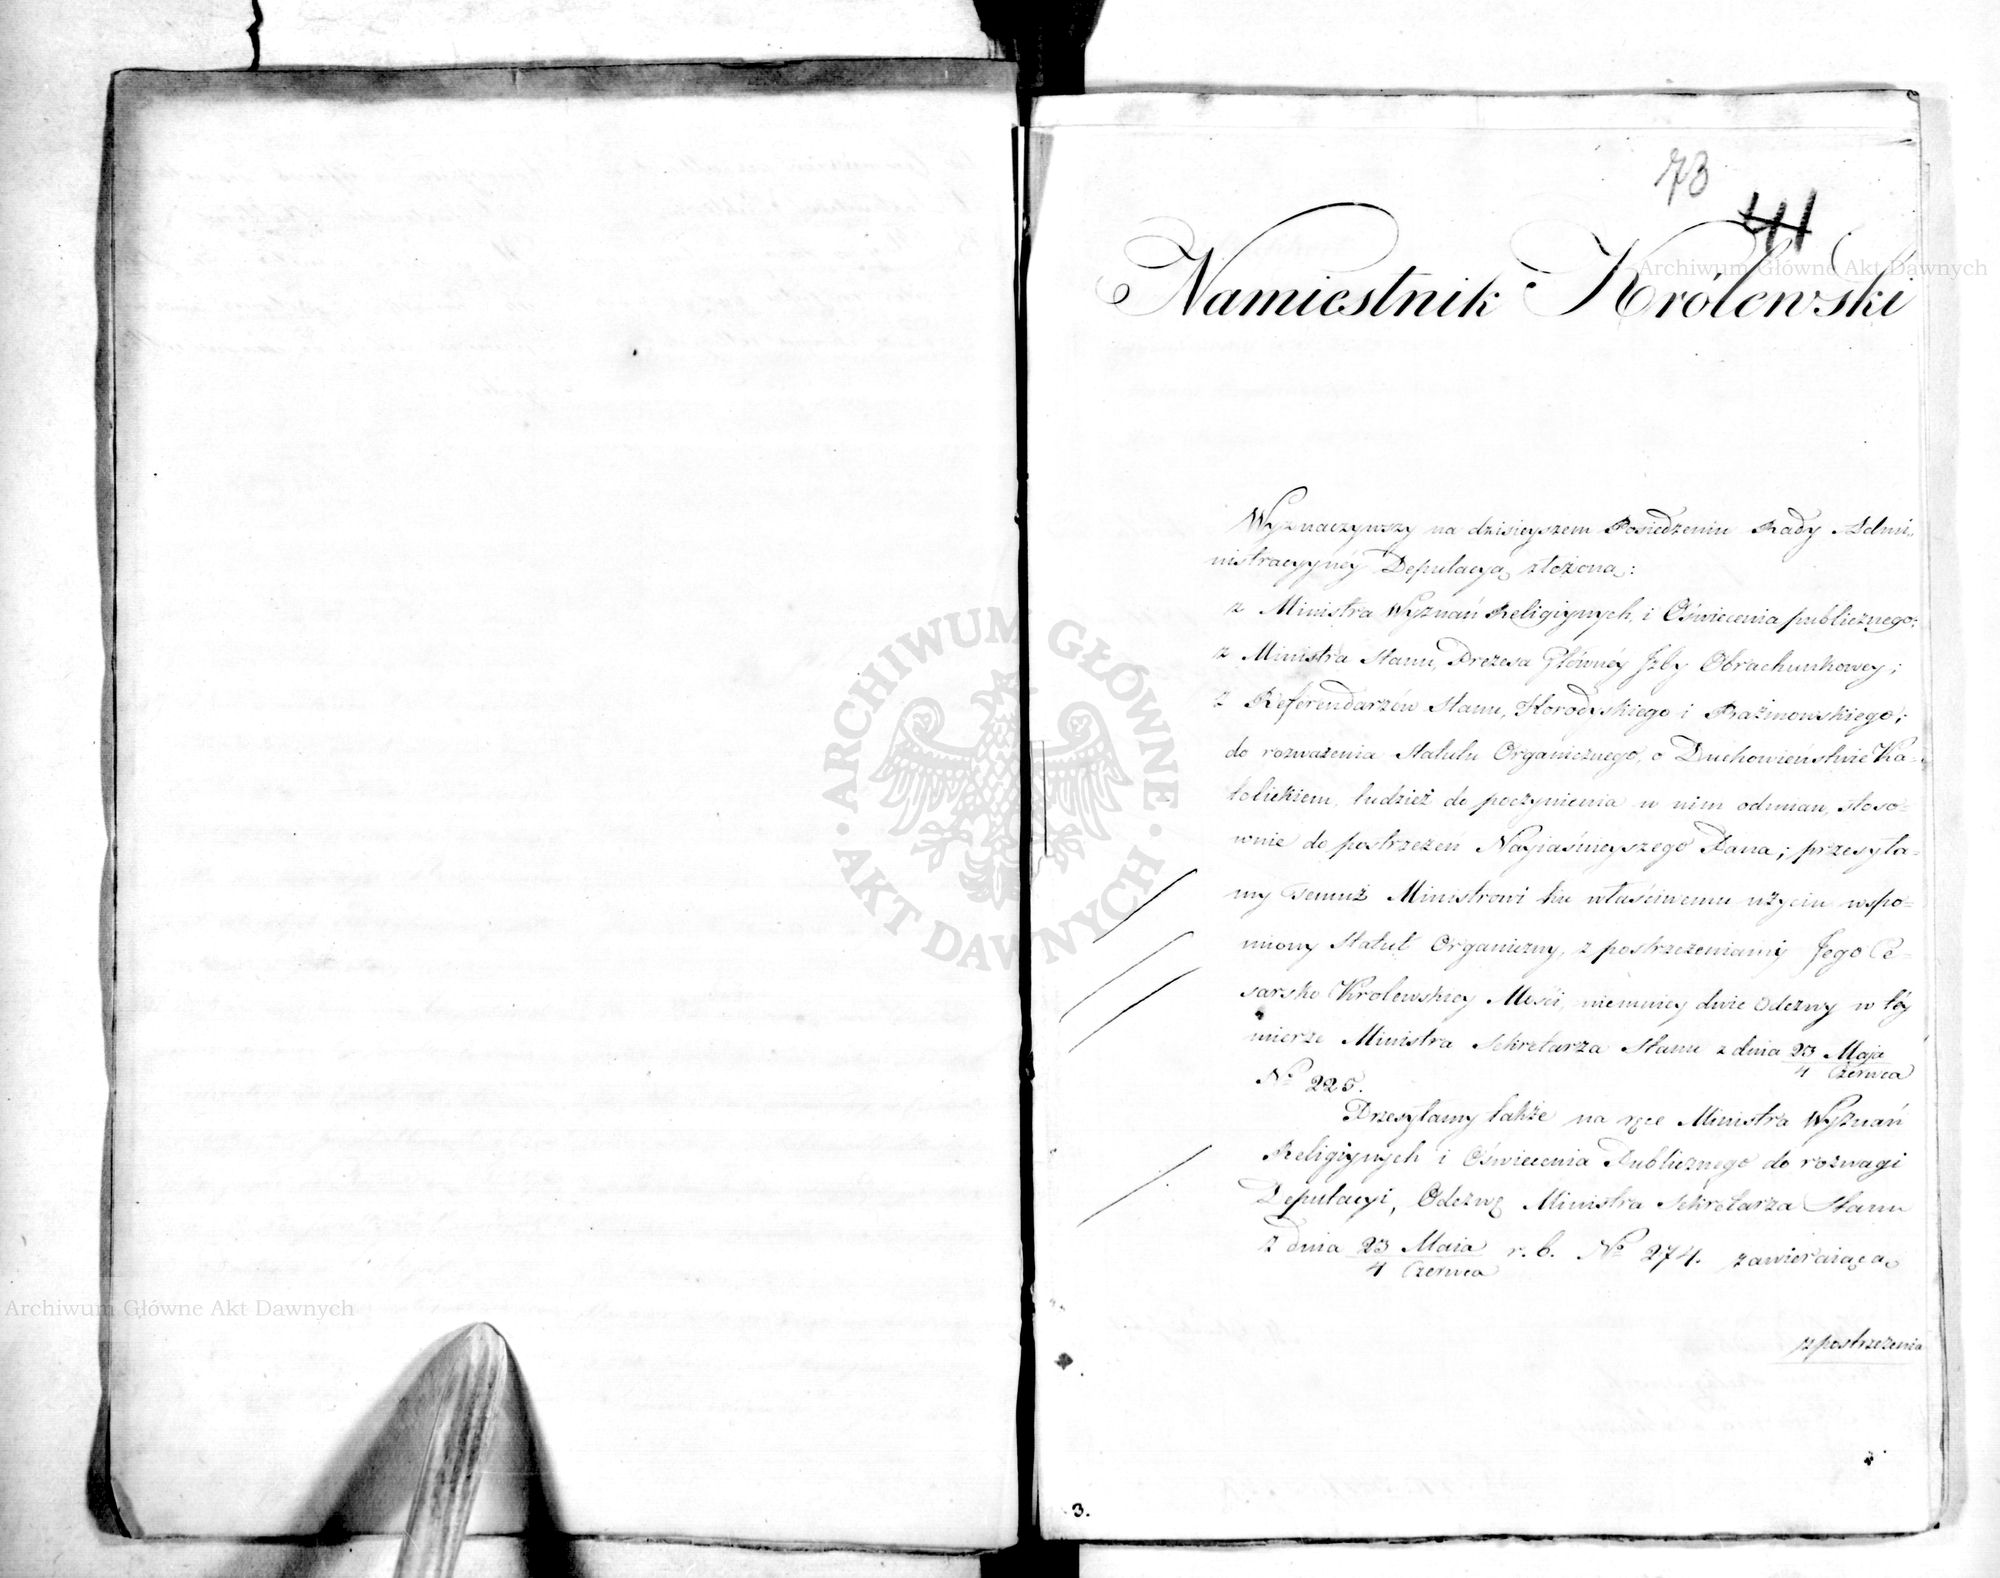 73
41
Namiestnik Królewski
Wyznaczywszy na dzisieyszem Posiedzeniu Rady Admi-
nistracyyney Deputacyą złożoną:
z Ministra Wyznań Religiynych i Oświecenia publicznego;
z Ministra Stanu, Prezesa Głównéy Izby Obrachunkowey;
z Referendarzów Stanu, Horodyskiego i Prażmowskiego;
do rozważenia Statutu Organicznego, o Duchowieństwie Ka-
tolickiem, tudzież do poczynienia w nim odmian, stoso-
wnie do postrzeżeń Nayiaśnieyszego Pana; przesyła-
my Temuż Ministrowi ku właściwemu użyciu wspo-
miony Statut Organiczny, z postrzeżeniami Jego Ce-
sarsko Krolewskiey Mości, niemniey dwie Odezwy w téy
mierze Ministra Sekretarza Stanu z dnia 23 Maja
4 Czerwca
No 225.
Przesyłamy także na ręce Ministra Wyznań
Religiynych i Oświecenia Publicznego do rozwagi
Deputacyi, Odezwę Ministra Sekretarza Stanu
z dnia 23 Maia r. b. No 274. zawieraiącą
4 Czerwca
postrzeżenia
3.
ARCHIWUM GŁÓWNE AKT DAWNYCH
Archiwum Główne Akt Dawnych
Archiwum Główne Akt Dawnych